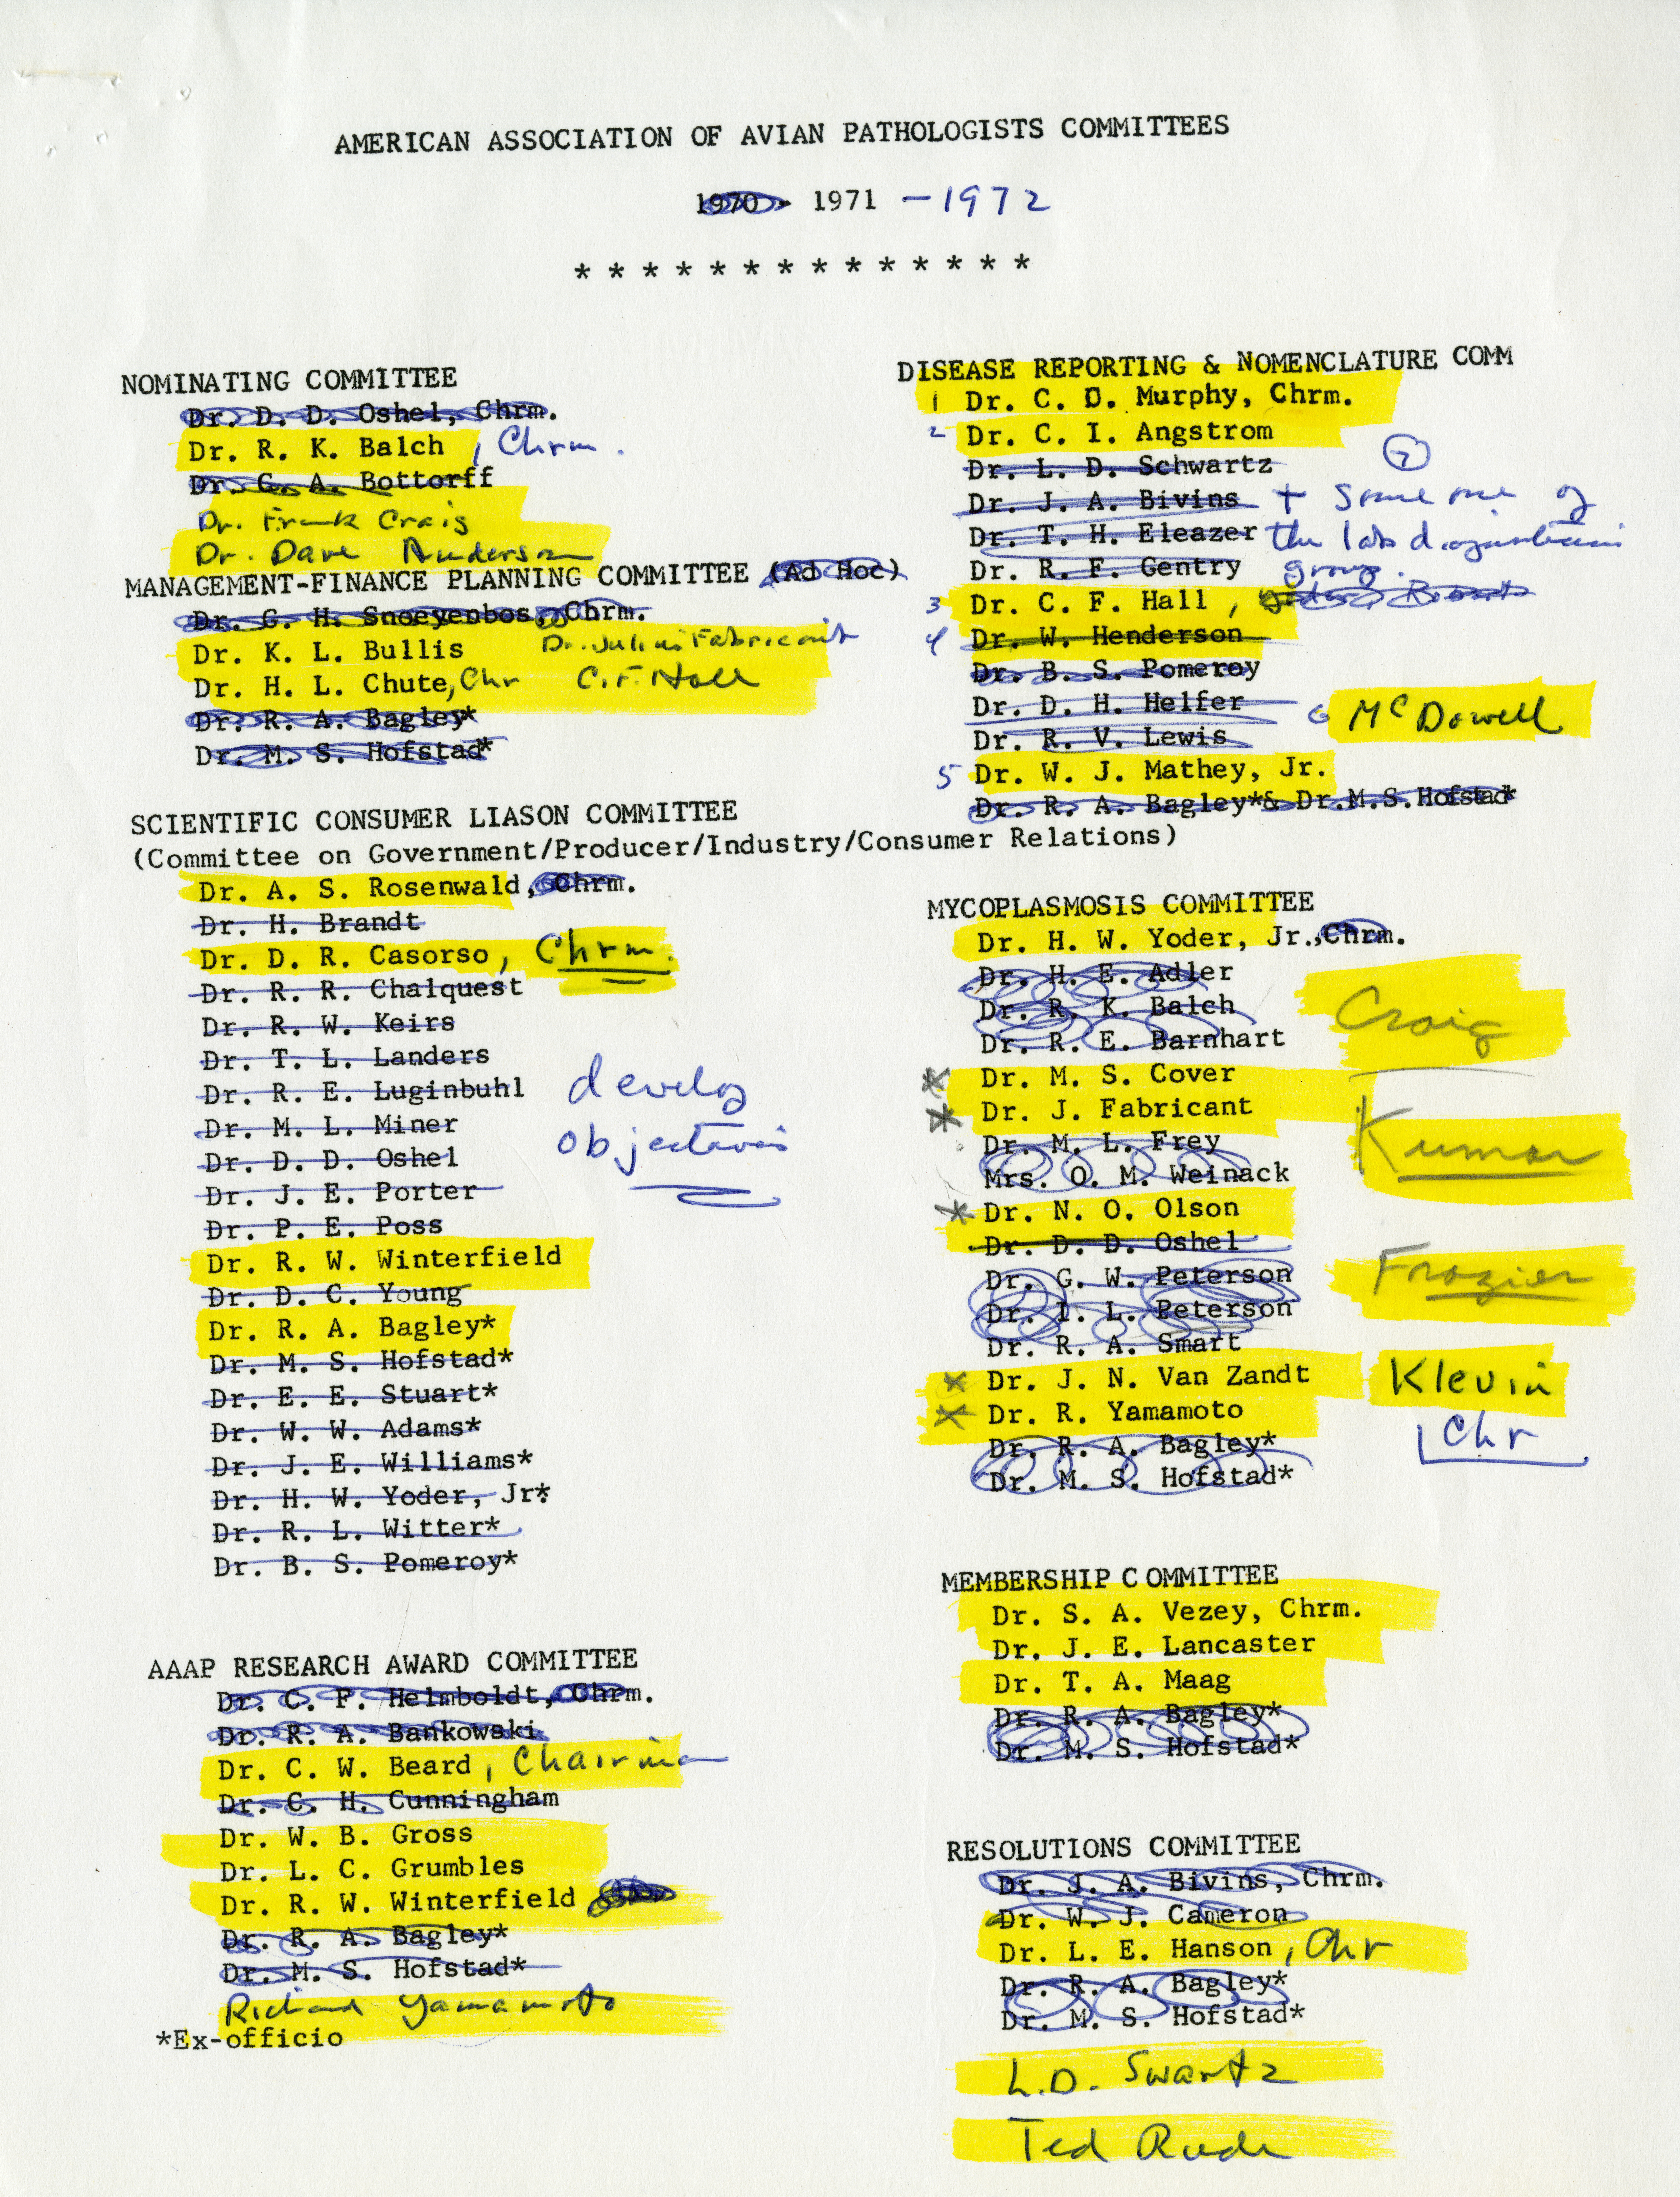 AMERICAN ASSOCIATION OF AVIAN PATHOLOGISTS COMMITTEES
1970- 1971 -1972
* * * * * * * * * * * * * *
NOMINATING COMMITTEE
Dr. D. D. Oshel, Chrm.
Dr. R. K. Balch , Chrm.
Dr. G. A. Bottorff
Dr. Frank Craig
Dr. Dave Anderson
MANAGEMENT-FINANCE PLANNING COMMITTEE (Ad Hoc)
Dr. G. H. Snoeyenbos, Chrm.
Dr. K. L. Bullis Dr. Julius Fabricant
Dr. H. L. Chute, Chr C.F. Hall
Dr. R. A. Bagley*
Dr. M. S. Hofstad*
SCIENTIFIC CONSUMER LIASON COMMITTEE
(Committee on Government/Producer/Industry/Consumer Relations)
Dr. A. S. Rosenwald, Chrm.
Dr. H. Brandt
Dr. D. R. Casorso, Chrm.
Dr. R. R. Chalquest
Dr. R. W. Keirs
Dr. T. L. Landers
Dr. R. E. Luginbuhl
Dr. M. L. Miner
Dr. D. D. Oshel
Dr. J. E. Porter
Dr. P. E. Poss
Dr. R. W. Winterfield
Dr. D. C. Young
Dr. R. A. Bagley*
Dr. M. S. Hofstad*
Dr. E. E. Stuart*
Dr. W. W. Adams*
Dr. J. E. Williams*
Dr. H. W. Yoder, Jr*
Dr. R. L. Witter*
Dr. B. S. Pomeroy*
develop
objectives
AAAP RESEARCH AWARD COMMITTEE
Dr. C. F. Helmboldt, Chrm.
Dr. R. A. Bankowski
Dr. C. W. Beard , Chairman
Dr. C. H. Cunningham
Dr. W. B. Gross
Dr. L. C. Grumbles
Dr. R. W. Winterfield
Dr. R. A. Bagley*
Dr. M. S. Hofstad*
Richard Yamamoto
*Ex-officio
DISEASE REPORTING & NOMENCLATURE COMM
1 Dr. C. D. Murphy, Chrm.
2 Dr. C. I. Angstrom
Dr. L. D. Schwartz 7
Dr. J. A. Bivins + Some one of
Dr. T. H. Eleazer the lab diagnosticians
Dr. R. F. Gentry group.
3 Dr. C. F. Hall ,
4 Dr. W. Henderson
Dr. B. S. Pomeroy
Dr. D. H. Helfer 6 McDowell
Dr. R. V. Lewis
5 Dr. W. J. Mathey, Jr.
Dr. R. A. Bagley*& Dr.M.S.Hofstad*
MYCOPLASMOSIS COMMITTEE
Dr. H. W. Yoder, Jr.,Chrm.
Dr. H. E. Adler
Dr. R. K. Balch Craig
Dr. R. E. Barnhart
Dr. M. S. Cover
Dr. J. Fabricant
Dr. M. L. Frey Kumar
Mrs. O. M. Weinack
Dr. N. O. Olson
Dr. D. D. Oshel
Dr. G. W. Peterson Frazier
Dr. I. L. Peterson
Dr. R. A. Smart
Dr. J. N. Van Zandt Klevin
Dr. R. Yamamoto
Dr. R. A. Bagley* Chr
Dr. M. S. Hofstad*
MEMBERSHIP COMMITTEE
Dr. S. A. Vezey, Chrm.
Dr. J. E. Lancaster
Dr. T. A. Maag
Dr. R. A. Bagley*
Dr. M. S. Hofstad*
RESOLUTIONS COMMITTEE
Dr. J. A. Bivins, Chrm.
Dr. W. J. Cameron
Dr. L. E. Hanson , Chr
Dr. R. A. Bagley*
Dr. M. S. Hofstad*
L.D. Swartz
Ted Rude